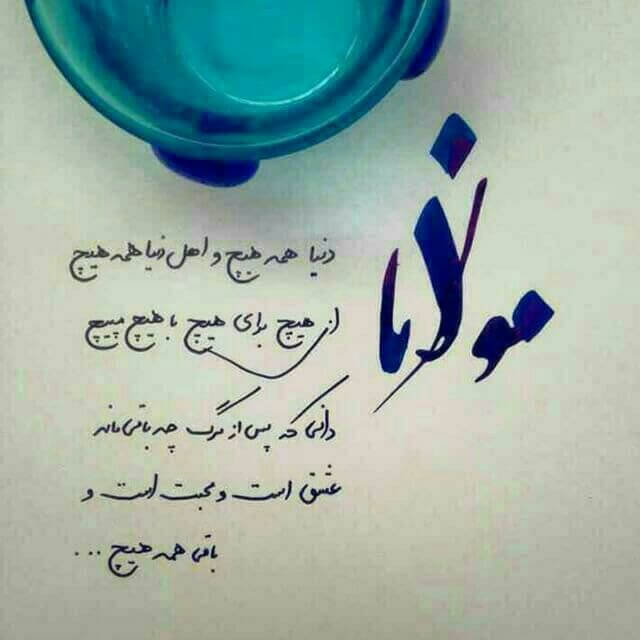 مولانا
دنیا همه هیچ و اهل دنیا همه هیچ
از هیچ برای هیچ با هیچ مپیچ
دانی که پس از مرگ چه باقی ماند
عشق است و محبت است و
باقی همه هیچ ...